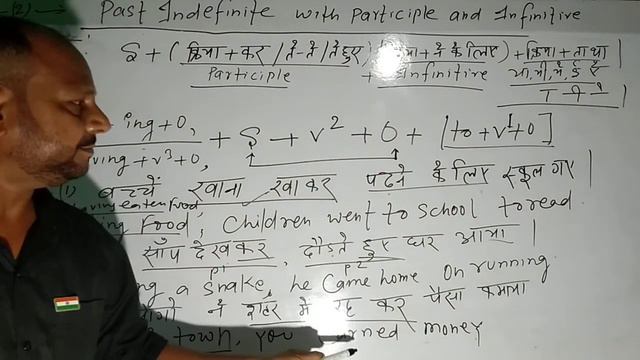 (2) Past Indefinite with Participle and Infinitive
S + (क्रिया + कर / ते-ते / ते हुए) + ने के लिए) + क्रिया + ता था
Participle + Infinitive
ing + O,
ving + V³ + O, + S + V² + O + [to + V¹ + O]
(1) बच्चें खाना खाकर पढ़ने के लिए स्कूल गए |
eaten food
Food, Children went to School to read.
साँप देखकर, दौड़ते हुए घर आया |
P1 P2
a snake, he came home on running
ने शहर में रह कर पैसा कमाया
town, you money